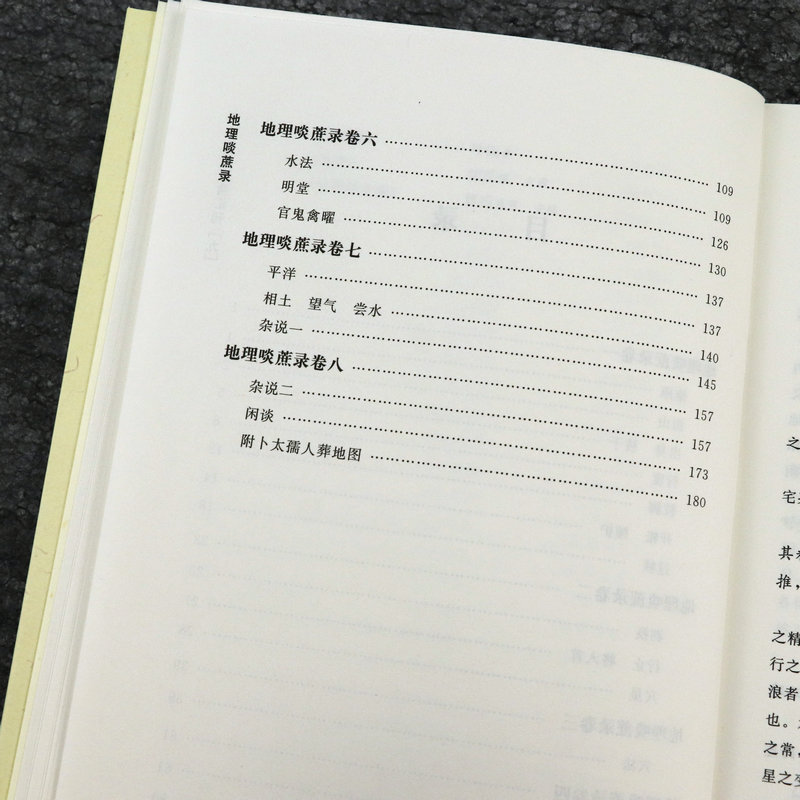 地理啖蔗录
地理啖蔗录卷六 109
水法 109
明堂 126
官鬼禽曜 130
地理啖蔗录卷七 137
平洋 137
相土 望气 尝水 140
杂说一 145
地理啖蔗录卷八 157
杂说二 157
闲谈 173
附卜太孺人葬地图 180
之
宅
其
推，
之精
行之
浪者
也。
之常，
星之变